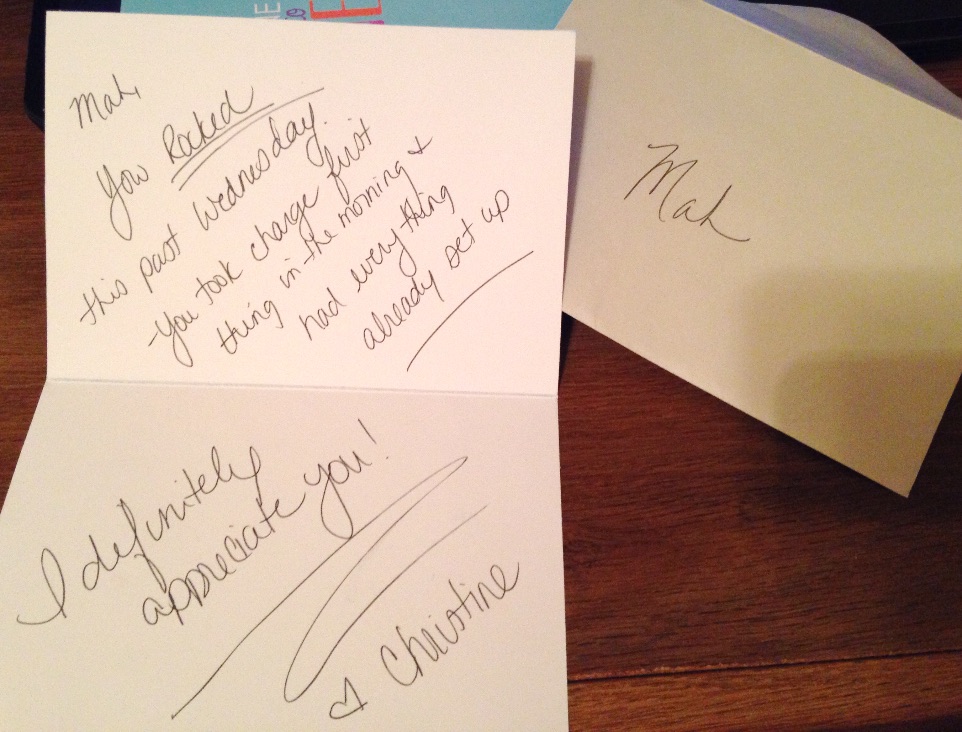 Mah,
You Rocked
this past Wednesday.
You took charge first
thing in the morning +
had everything
already set up
I definitely
appreciate you!
♡ Christine
Mah